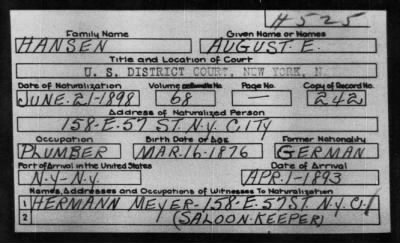 H 525
Family Name Given Name or Names
HANSEN AUGUST E.
Title and Location of Court
U. S. DISTRICT COURT, NEW YORK, N
Date of Naturalization Volume or Bundle No. Page No. Copy of Record No.
JUNE-21-1898 68 — 242
Address of Naturalized Person
158-E-57 ST N.Y. CITY
Occupation Birth Date or Age Former Nationality
PLUMBER MAR-16-1876 GERMAN
Port of Arrival in the United States Date of Arrival
N-Y-N.Y APR-1-1893
Names, Addresses and Occupations of Witnesses To Naturalization
1 HERMANN MEYER-158-E-57 ST N.Y. City
2 (SALOON-KEEPER)